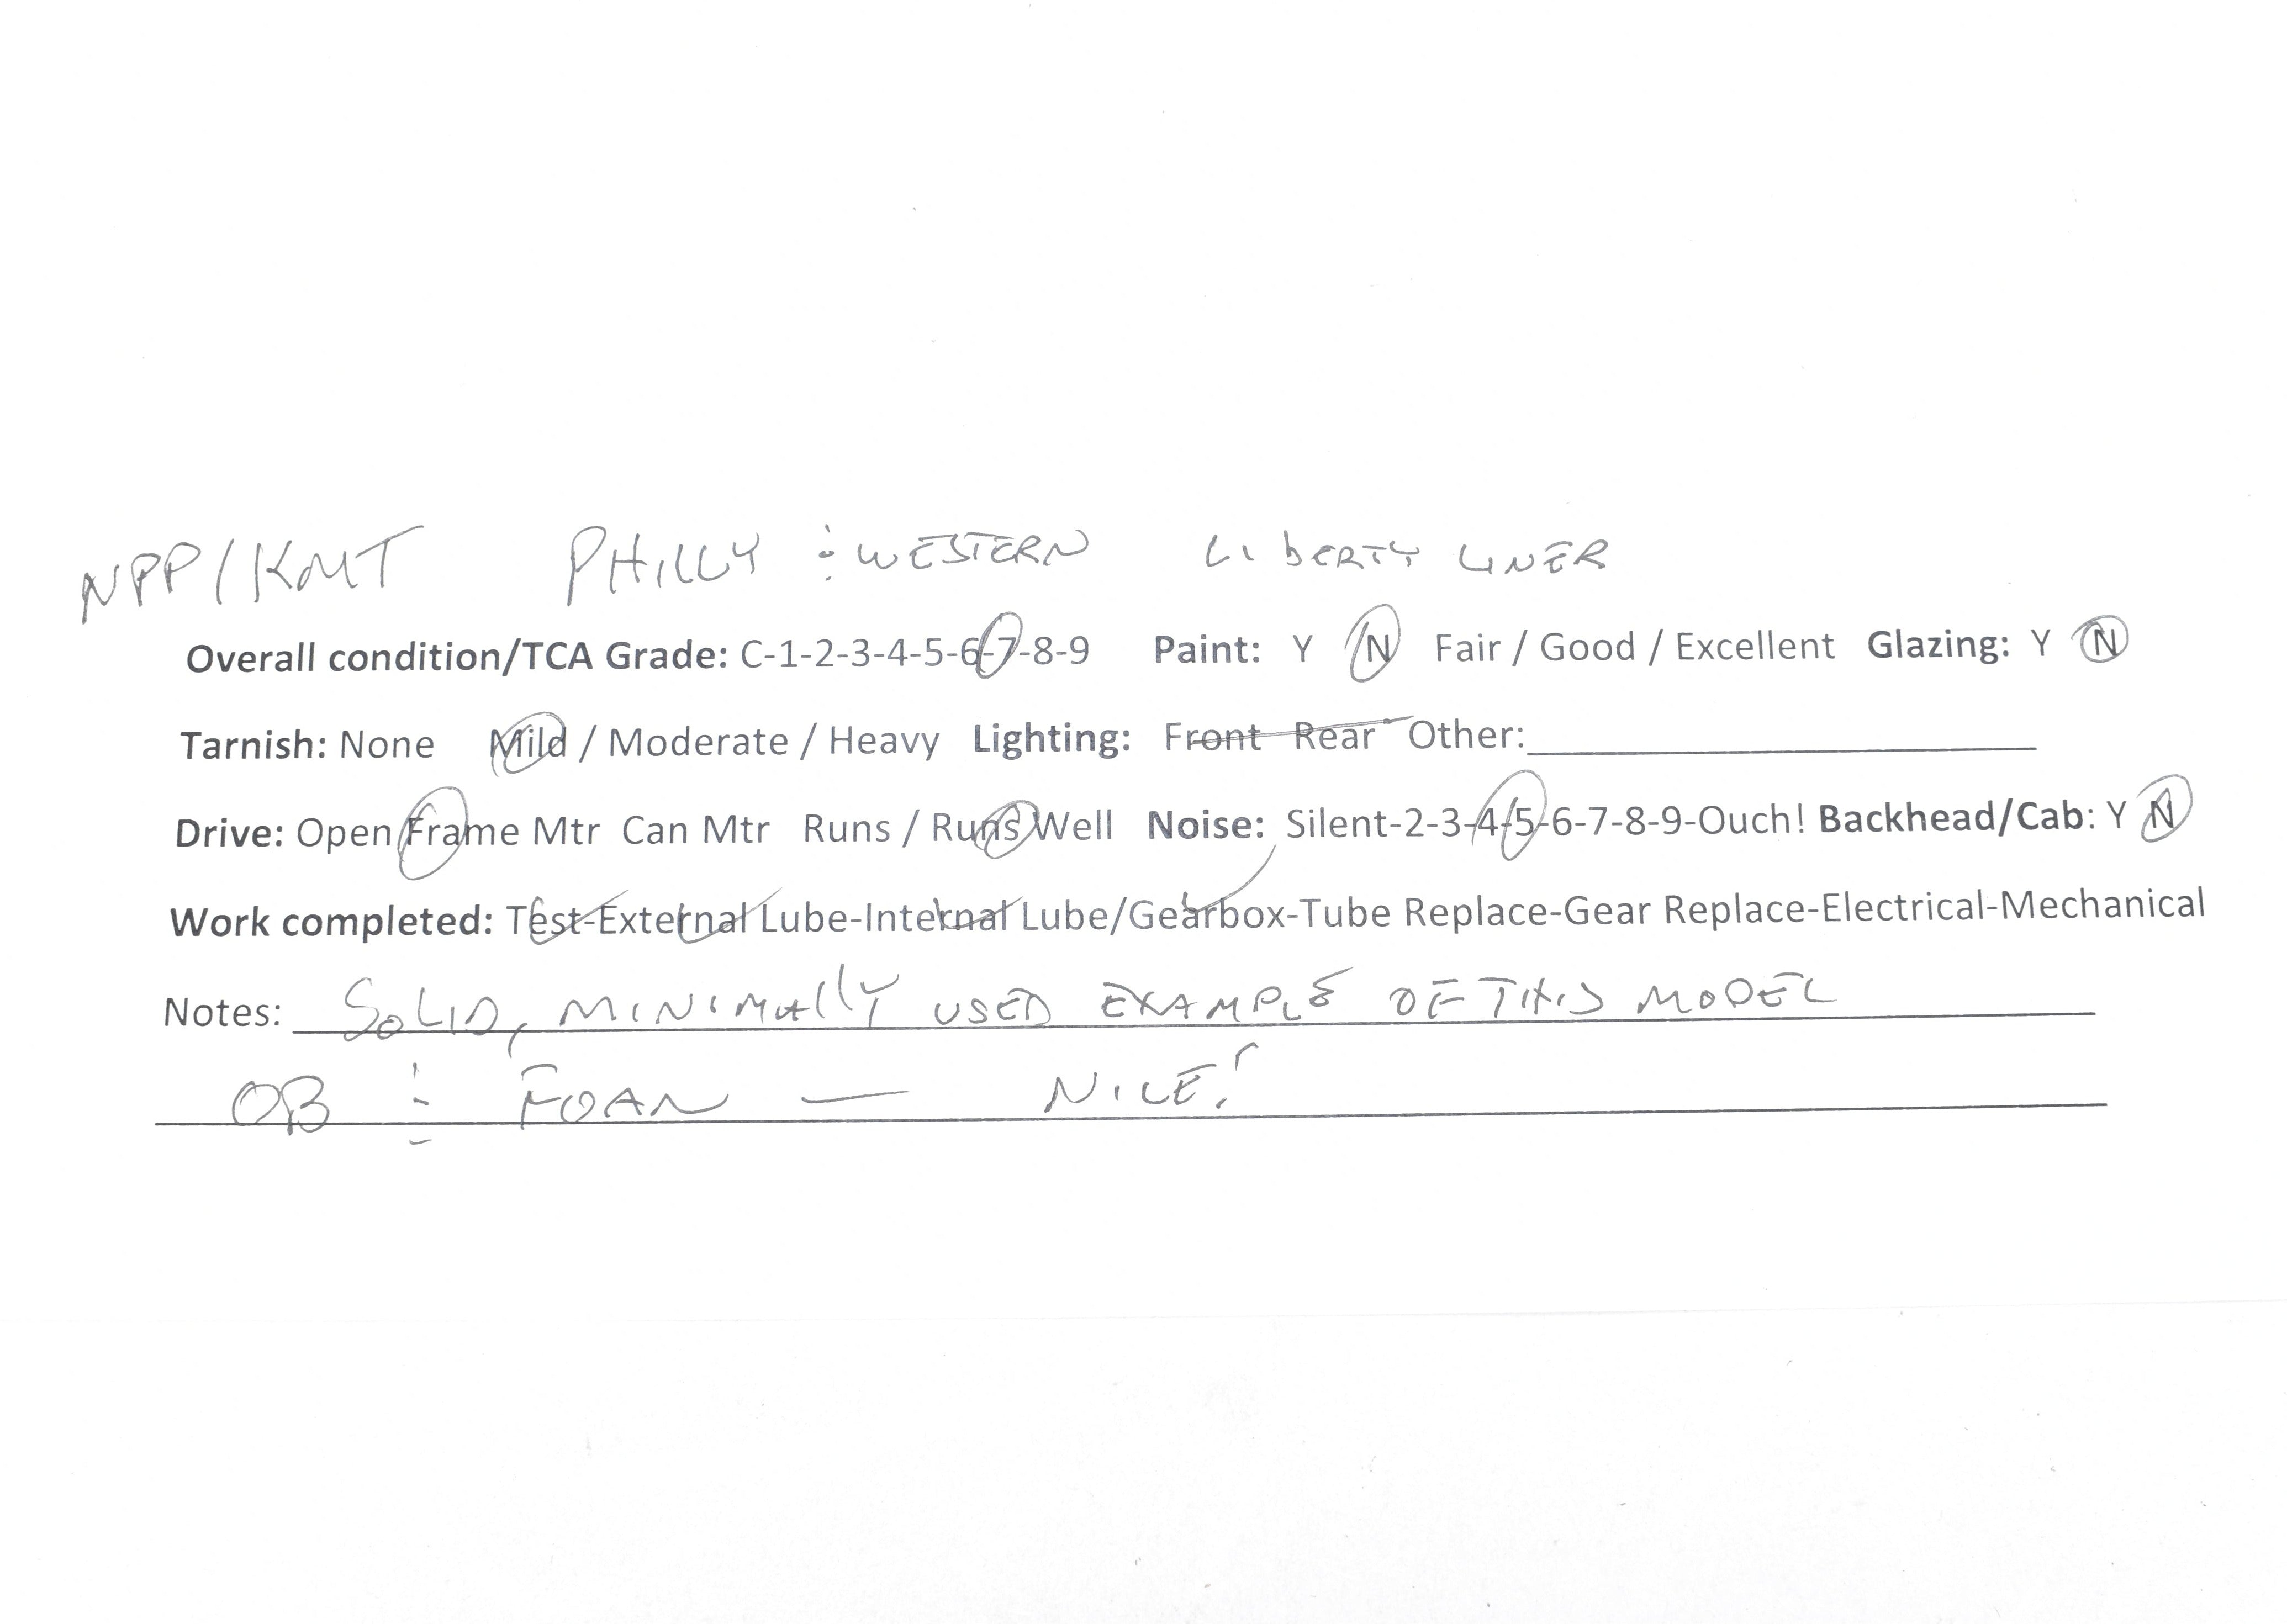 NPP/KMT PHILLY & WESTERN LIBERTY LINER
Overall condition/TCA Grade: C-1-2-3-4-5-6-7-8-9 Paint: Y N Fair / Good / Excellent Glazing: Y N
Tarnish: None Mild / Moderate / Heavy Lighting: Front Rear Other:
Drive: Open Frame Mtr Can Mtr Runs / Runs Well Noise: Silent-2-3-4-5-6-7-8-9-Ouch! Backhead/Cab: Y N
Work completed: Test-External Lube-Internal Lube/Gearbox-Tube Replace-Gear Replace-Electrical-Mechanical
Notes: SOLID, MINIMALLY USED EXAMPLE OF THIS MODEL
OB & FOAM — NICE!